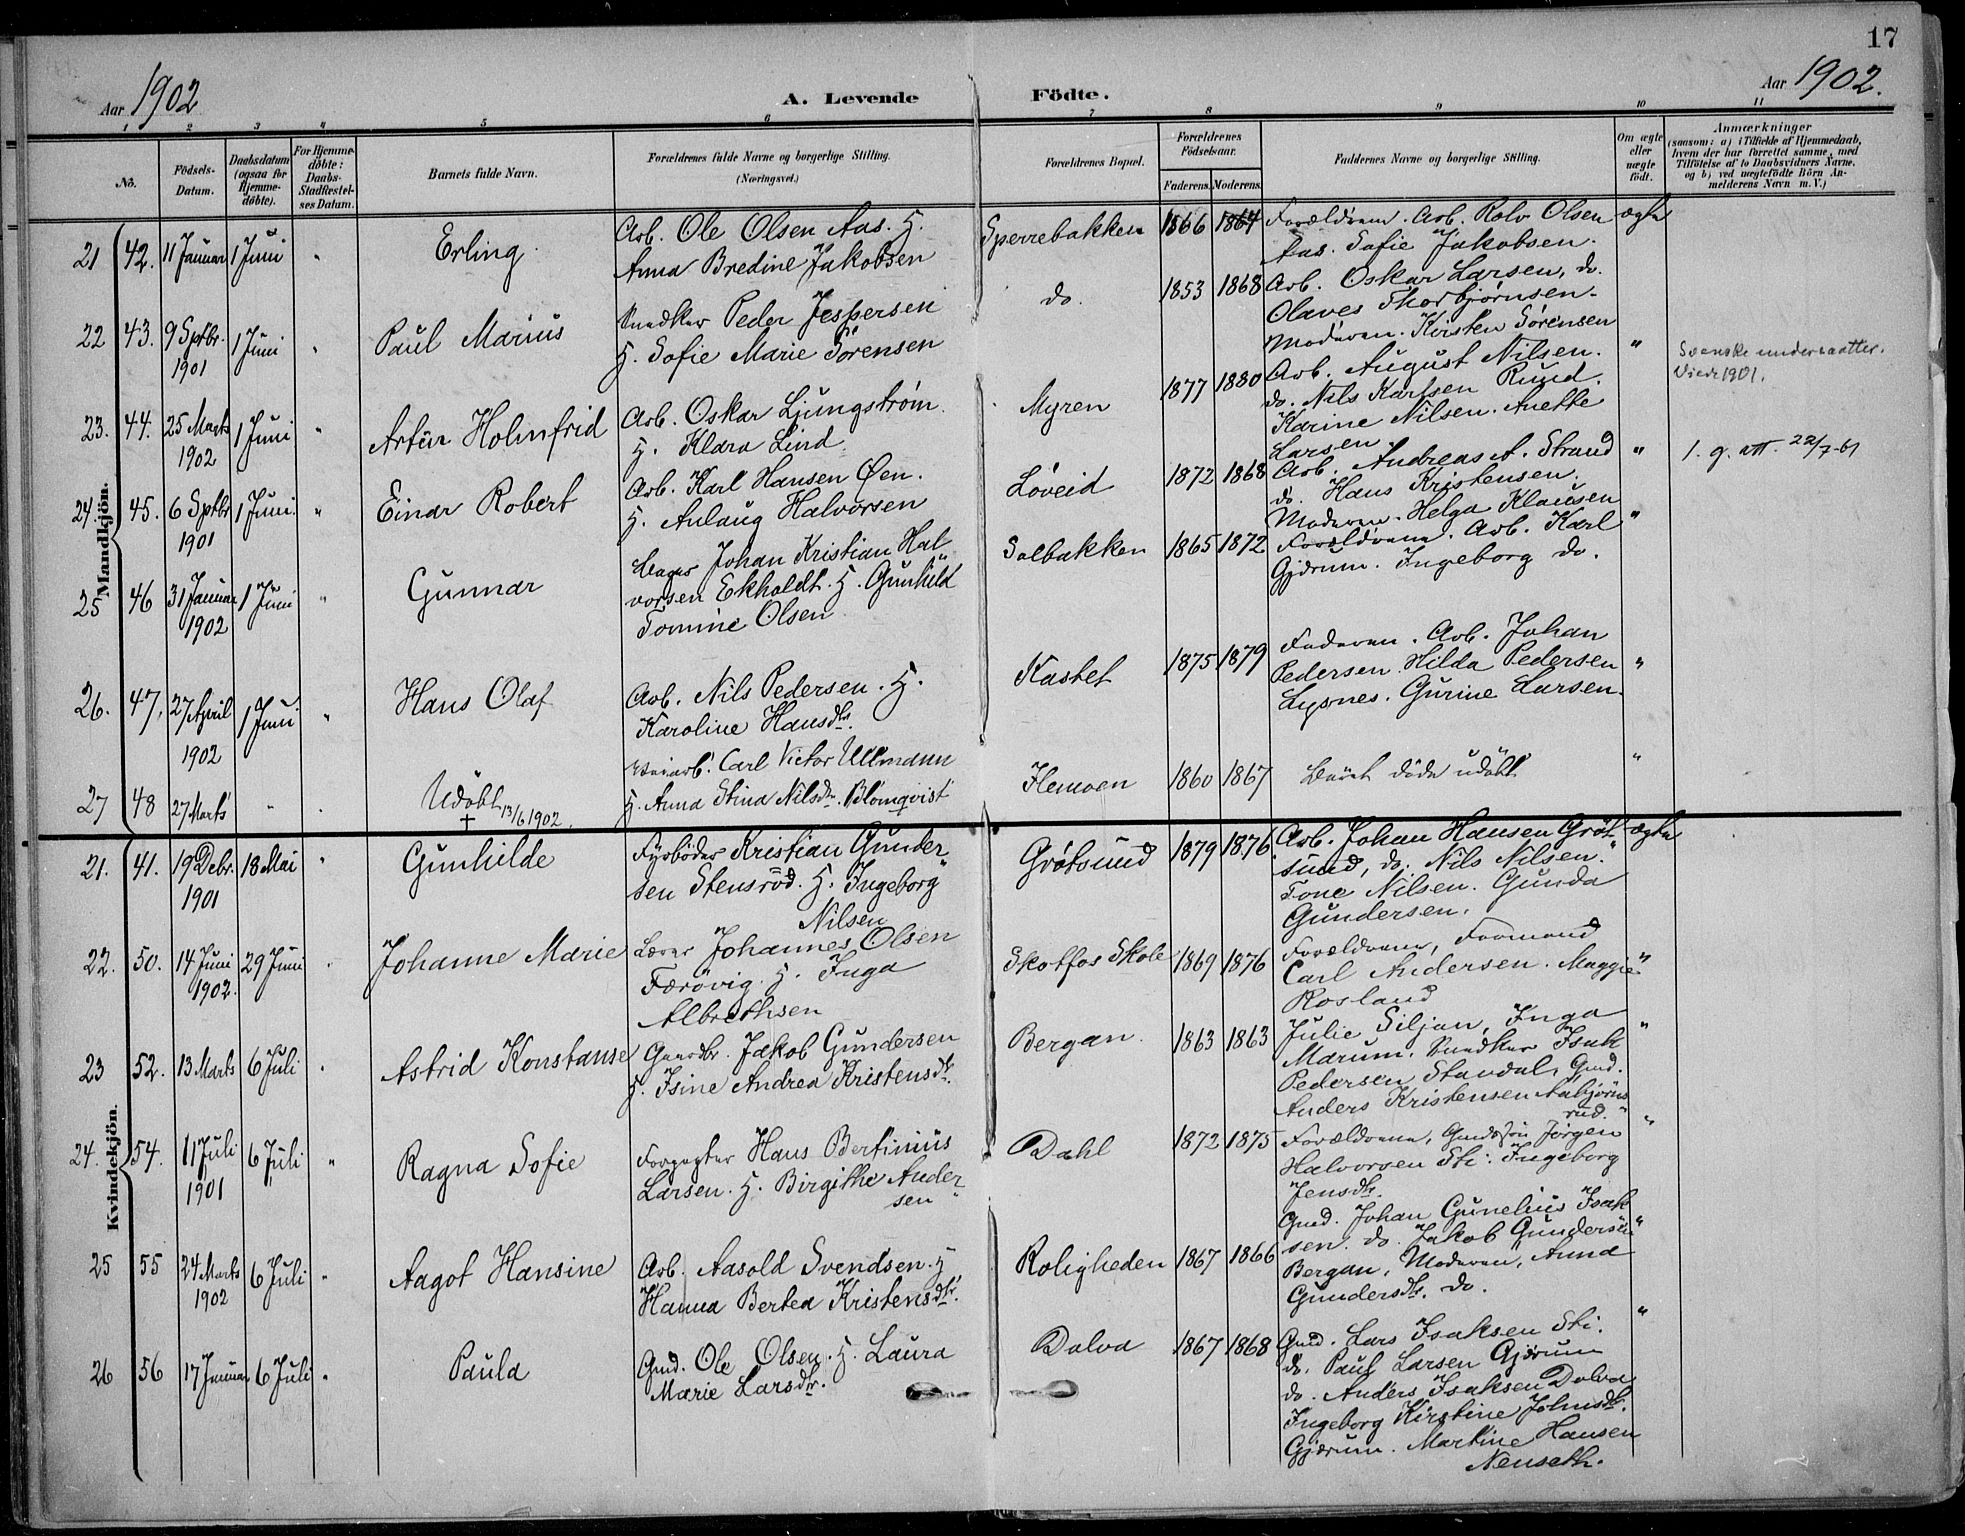 17
Aar 1902
A. Levende Födte.
Aar 1902.
1 2 3 4 5 6 7 8 9 10 11
No.
Födsels-Datum.
Daabsdatum (ogsaa for Hjemme-döbte).
For Hjemme-döbte: Daabs-Stadfæstel-ses Datum.
Barnets fulde Navn.
Forældrenes fulde Navne og borgerlige Stilling.
(Næringsvei.)
Forældrenes Bopæl.
Forældrenes Födselsaar.
Faderens. Moderens.
Faddernes Navne og borgerlig Stilling.
Om ægte eller uægte födt.
Anmærkninger
(saasom: a) i Tilfælde af Hjemmedaab,
hvem der har forrettet samme, med
Tilföielse af to Daabsvidners Navne,
og b) ved uægtefödte Börn An-
melderens Navn m. V.)
Mandkjön.
21 42. 11 Januar 1 Juni " Erling.
Arb. Ole Olsen Aas. H.
Anna Bredine Jakobsen
Sperrebakken 1866 1864
Forældrene. Arb. Rolv Olsen
Aas. Sofie Jakobsen.
ægte
22 43. 9 Sptbr. 1901 1 Juni " Paul Marius
Snedker Peder Jespersen
H. Sofie Marie Sörensen
do. 1853 1868
Arb. Oskar Larsen, do.
Olaves Thorbjørnsen.
Moderen. Kristen Sörensen
"
23. 44. 25 Marts 1902 1 Juni " Artur Holmfrid
Arb. Oskar Ljungström.
H. Klara Lind
Myren 1877 1880
Arb. August Nilsen.
do. Nils Karlsen Rund.
Karine Nilsen. Anette
Larsen.
Svenske undersaatter.
Viede 1901.
24. 45. 6 Sptbr 1901 1 Juni " Einar Robert
Arb. Karl Hansen Øen.
H. Anlaug Halvorsen
Löveid 1872 1868
Arb. Andreas A. Strand
do. Hans Kristensen.
Moderen. Helga Klausen
"
1. g. att. 22/7-61
25 46 31 Januar 1902 1 Juni " Gunnar
Johan Kristian Hal
vorsen Ekholdt. H. Gunhild
Tomine Olsen
Solbakken 1865 1872
Forældrene. Arb. Karl
Gjærum. Ingeborg do.
"
26. 47. 27 April 1902 1 Juni " Hans Olaf
Arb. Nils Pedersen. H.
Karoline Hansdtr.
Kastet 1875 1879
Faderen. Arb. Johan
Pedersen. Hilda Pedersen
Lysnes. Gurine Larsen.
"
27 48 27 Marts " . Udöbt
† 13/6 1902.
Carl Victor Ullmann
H. Anna Stina Nilsdtr. Blomqvist
Flemoen 1860 1867
Barnet döde udöbt
"
Kvindekjön.
21. 41. 19 Debr. 1901 18 Mai " Gunhilde
Fyrböder Kristian Gunder
sen Stensröd. H. Ingeborg
Nilsen
Grötsund 1879 1876
Arb. Johan Hansen Gröt
sund, do. Nils Nilsen.
Tone Nilsen. Gunda
Gundersen.
ægte
22. 50. 14 Juni 1902. 29 Juni . Johanne Marie
Lærer Johannes Olsen
Færövig. H. Inga
Albrethsen
Skotfos Skole 1869 1876
Forældrene, Formand
Carl Andersen. Maggie
Rosland
"
23 52. 13 Marts 6 Juli . Astrid Konstanse
Gaardbr. Jakob Gundersen
H. Isine Andrea Kristensdtr.
Bergan. 1863 1863
Julie Siljan, Inga
Marum. Snedker Isak
Pedersen Standal, Gmd.
Anders Kristensen Aabjörns
rud.
"
24. 54. 11 Juli 1901 6 Juli " Ragna Sofie
Forpagter Hans Bertinius
Larsen. H. Birgithe Ander
sen
Dahl 1872 1875
Forældrene, Jörgen
Halvorsen Sti. Ingeborg
Jensdtr.
"
25 55 24 Marts 1902 6 Juli " Aagot Hansine
Arb. Aasold Svendsen. H
Hanna Bertea Kristensdtr.
Roligheden 1867 1866
Gmd. Johan Gunelius Isak
sen. do. Jakob Gundersen
Bergan, Moderen, Anna
Gundersdtr. do.
"
26 56 17 Januar 6 Juli . Paula
Gmd. Ole Olsen. H. Laura
Marie Larsdtr.
Dalva 1867 1868
Gmd. Lars Isaksen Sti.
do. Paul Larsen Gjærum
do. Anders Isaksen Dalva
Ingeborg Kirstine Johnsdtr.
Gjærum. Martine Hansen
Nenseth.
"